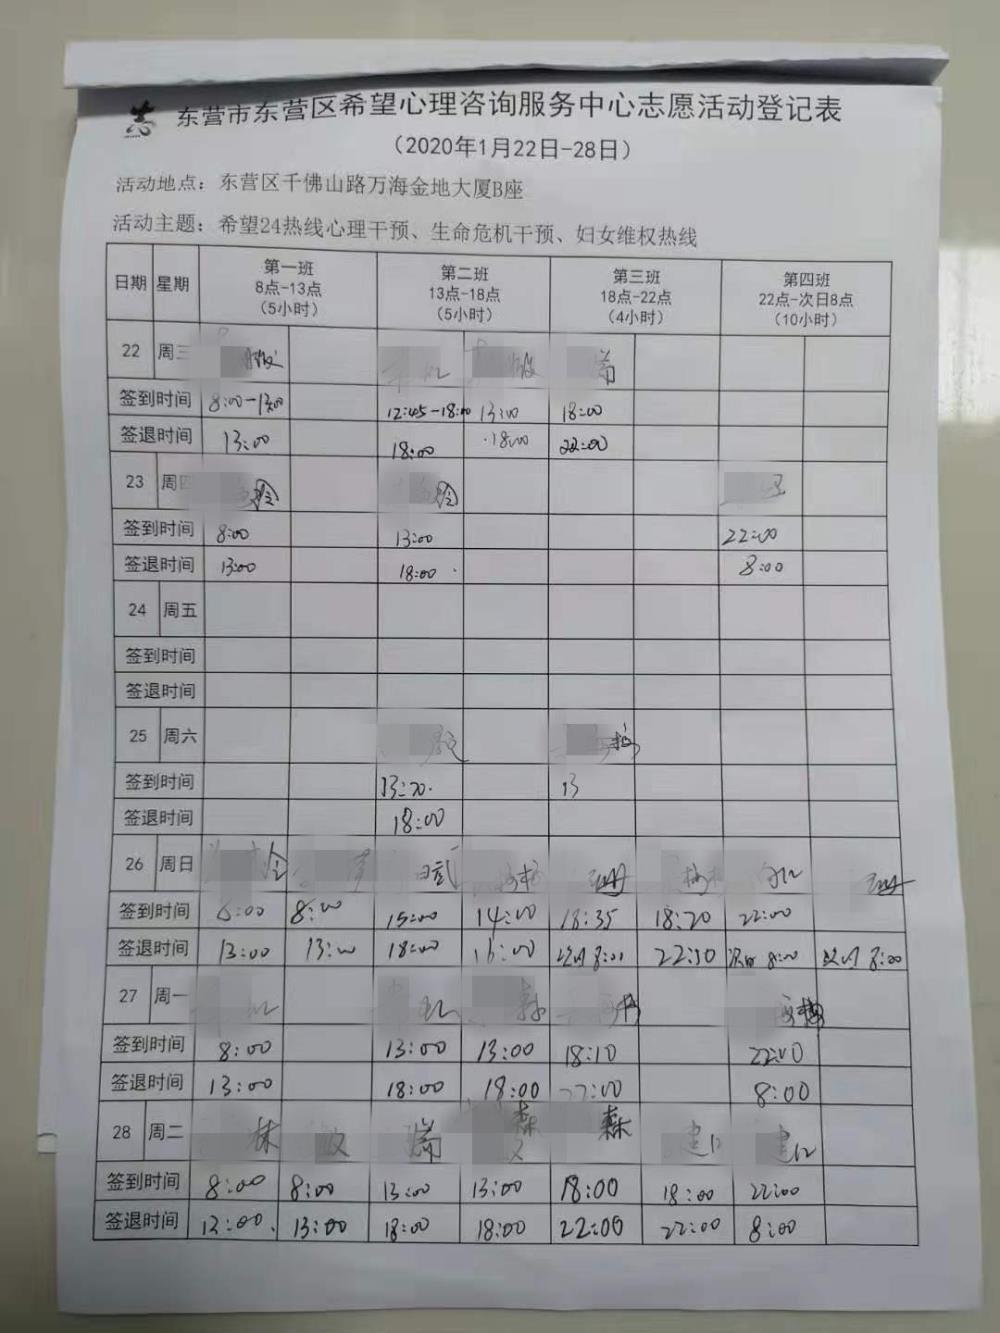 东营市东营区希望心理咨询服务中心志愿活动登记表
（2020年1月22日-28日）
活动地点：东营区千佛山路万海金地大厦B座
活动主题：希望24热线心理干预、生命危机干预、妇女维权热线
日期 星期 第一班 8点-13点 （5小时） 第二班 13点-18点 （5小时） 第三班 18点-22点 （4小时） 第四班 22点-次日8点 （10小时）
22 周三
签到时间 8:00-13:00 12:45-18:00 13:00 18:00
签退时间 13:00 18:00 18:00 22:00
23 周四
签到时间 8:00 13:00 22:00
签退时间 13:00 18:00 8:00
24 周五
签到时间
签退时间
25 周六
签到时间 13:20 13
签退时间 18:00
26 周日
签到时间 8:00 15:00 14:00 18:35 18:20 22:00
签退时间 13:00 13:00 18:00 16:00 次日8:00 次日8:00
27 周一
签到时间 8:00 13:00 13:00 18:10 22:00
签退时间 13:00 18:00 18:00 8:00
28 周二 林 瑞 森 森
签到时间 8:00 8:00 13:00 13:00 18:00 18:00 22:00
签退时间 12:00 13:00 18:00 18:00 22:00 22:00 8:00